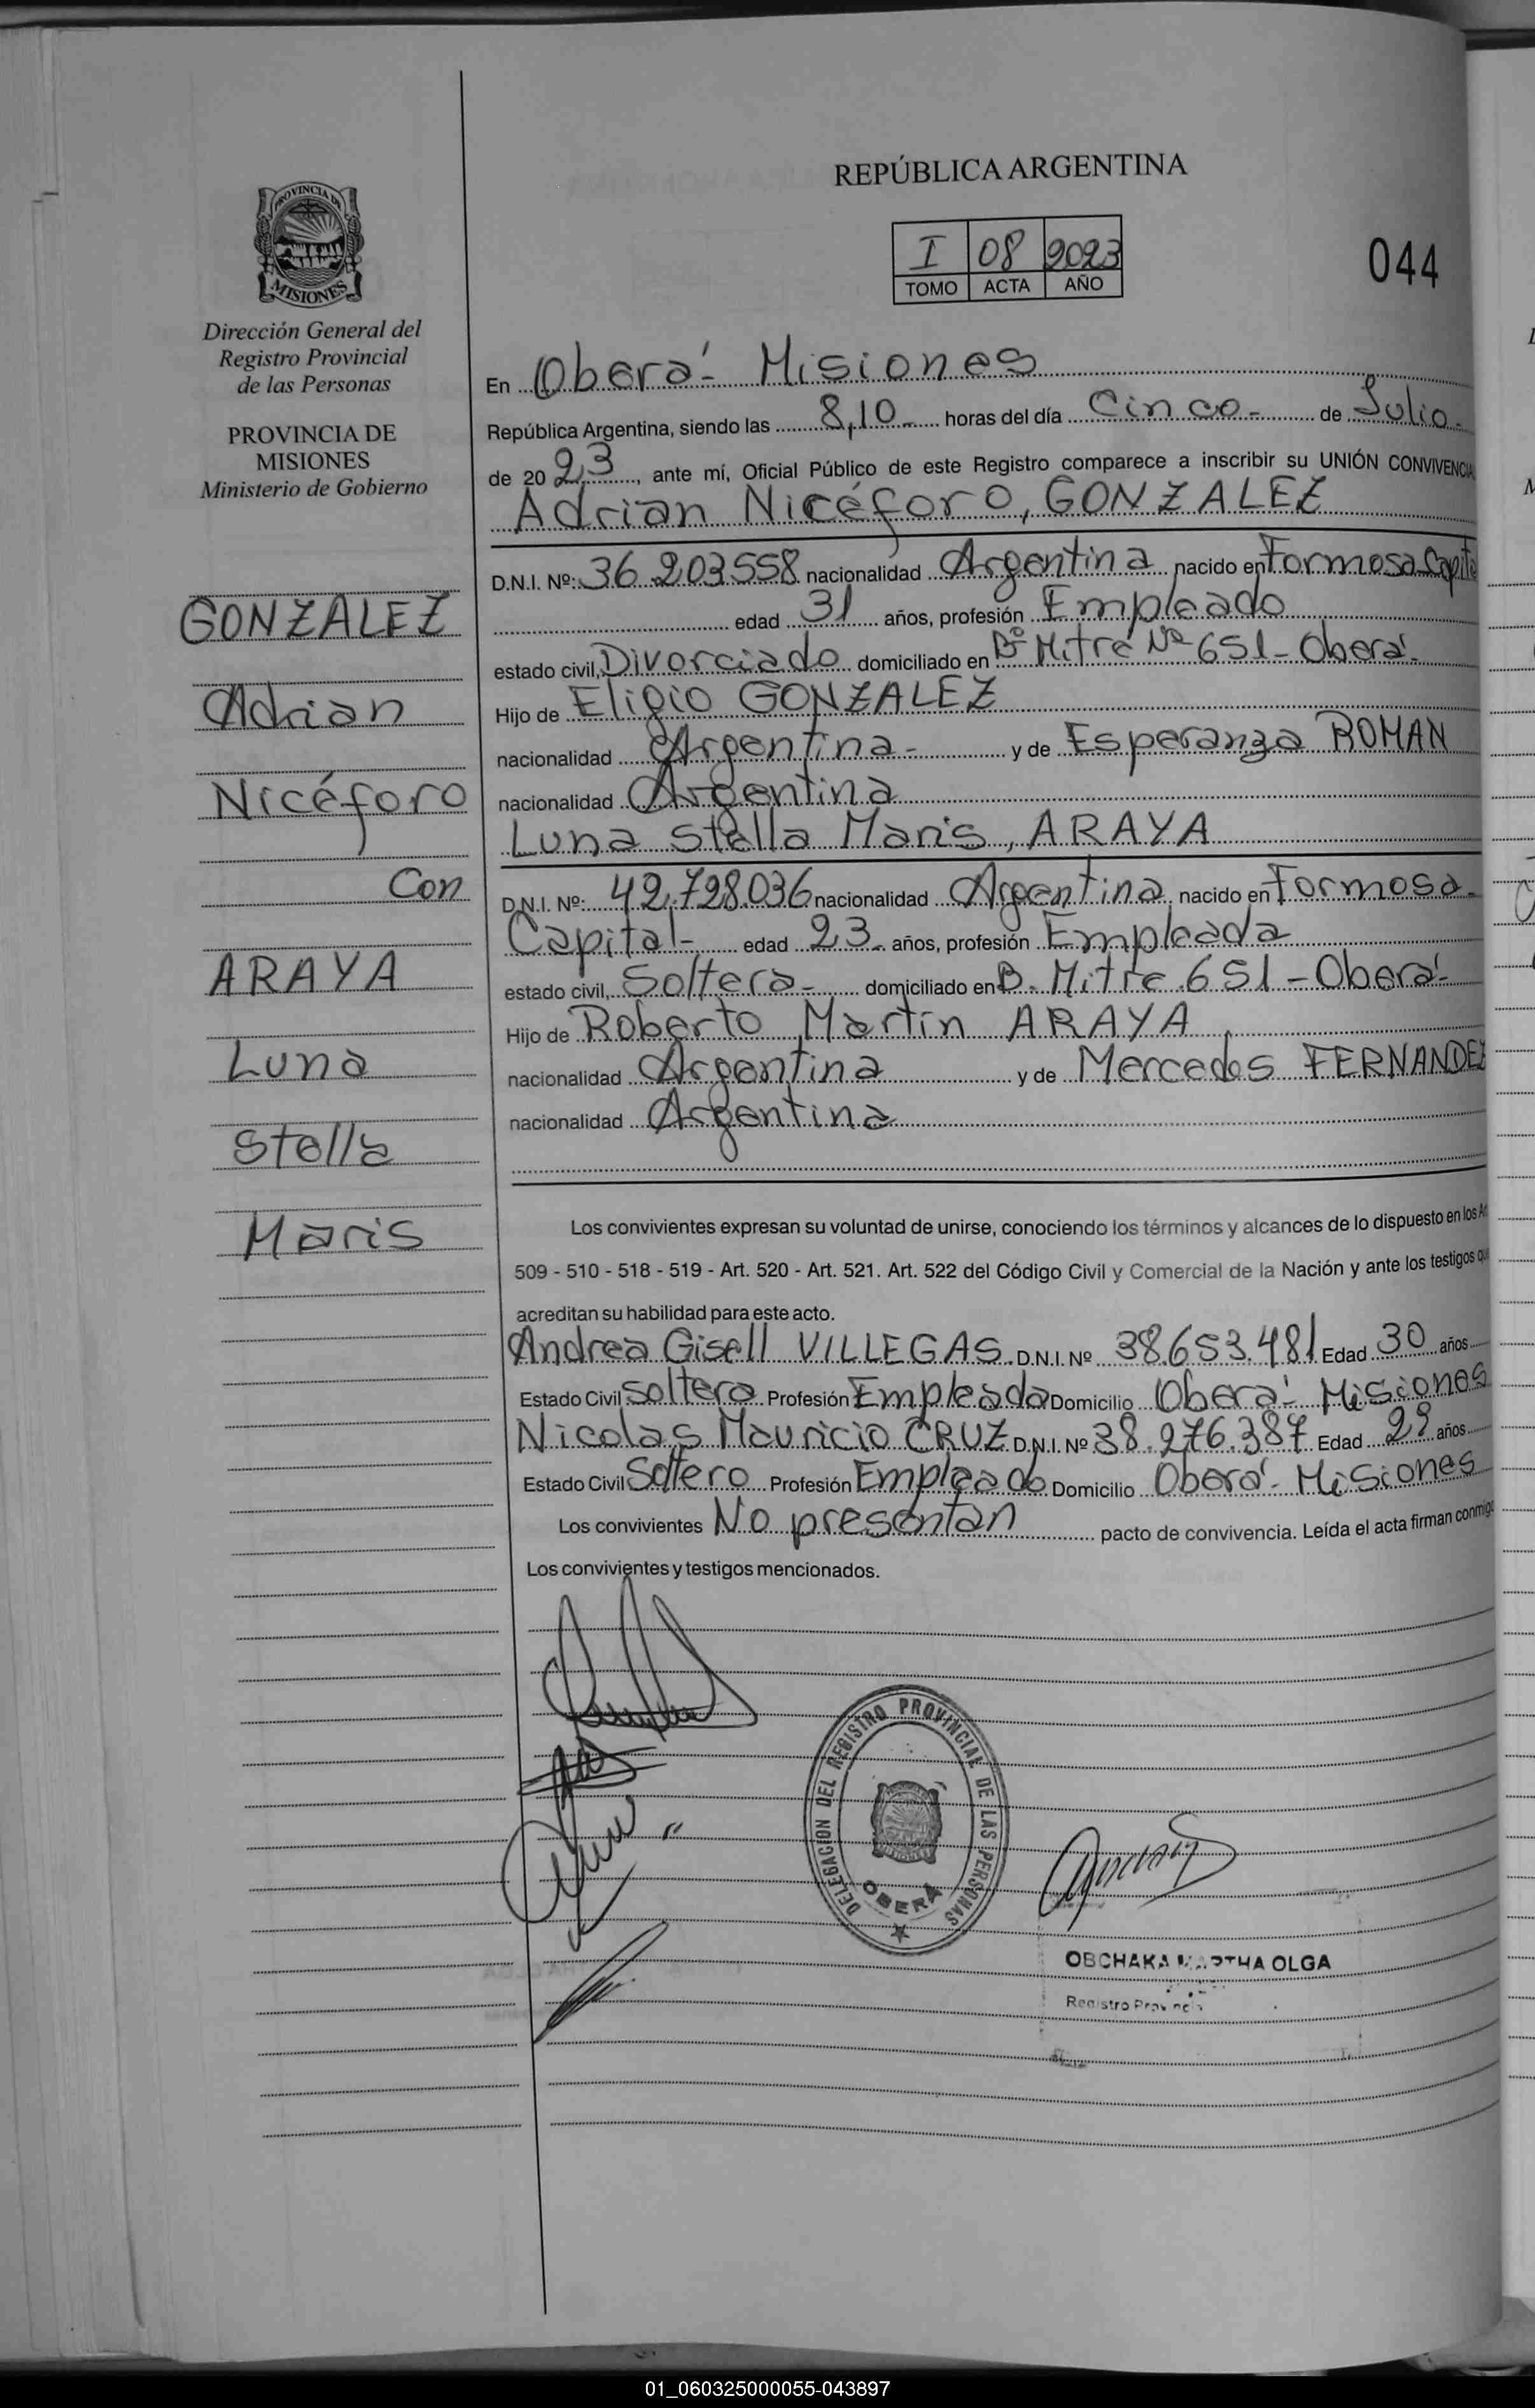 REPÚBLICA ARGENTINA
PROVINCIA DE
MISIONES
I 08 2023
TOMO ACTA AÑO
044
Dirección General del
Registro Provincial
de las Personas
PROVINCIA DE
MISIONES
Ministerio de Gobierno
GONZALEZ
Adrian
Nicéforo
Con
ARAYA
Luna
Stella
Maris
En Oberá - Misiones
República Argentina, siendo las 8,10 - horas del día Cinco - de Julio -
de 20 23, ante mí, Oficial Público de este Registro comparece a inscribir su UNIÓN CONVIVENCIA
Adrian Nicéforo, GONZALEZ
D.N.I. Nº: 36.203558 nacionalidad Argentina nacido en Formosa Capital
edad 31 años, profesión Empleado
estado civil, Divorciado domiciliado en Bº Mitre Nº 651 - Oberá -
Hijo de Eligio GONZALEZ
nacionalidad Argentina - y de Esperanza ROMAN
nacionalidad Argentina
Luna Stella Maris, ARAYA
D.N.I. Nº: 42.728.036 nacionalidad Argentina nacido en Formosa -
Capital - edad 23 - años, profesión Empleada
estado civil, Soltera - domiciliado en B. Mitre 651 - Oberá -
Hijo de Roberto Martín ARAYA
nacionalidad Argentina y de Mercedes FERNANDEZ
nacionalidad Argentina
Los convivientes expresan su voluntad de unirse, conociendo los términos y alcances de lo dispuesto en los
509 - 510 - 518 - 519 - Art. 520 - Art. 521. Art. 522 del Código Civil y Comercial de la Nación y ante los testigos
acreditan su habilidad para este acto.
Andrea Gisell VILLEGAS D.N.I. Nº 38.653.481 Edad 30 años
Estado Civil Soltera Profesión Empleada Domicilio Oberá - Misiones
Nicolas Mauricio CRUZ D.N.I. Nº 38.276.387 Edad 29 años
Estado Civil Soltero Profesión Empleado Domicilio Oberá - Misiones
Los convivientes No presentan pacto de convivencia. Leída el acta firman conmigo
Los convivientes y testigos mencionados.
DELEGACION DEL REGISTRO PROVINCIAL DE LAS PERSONAS
OBERA
OBCHAKA MARTHA OLGA
Registro
01_060325000055-043897